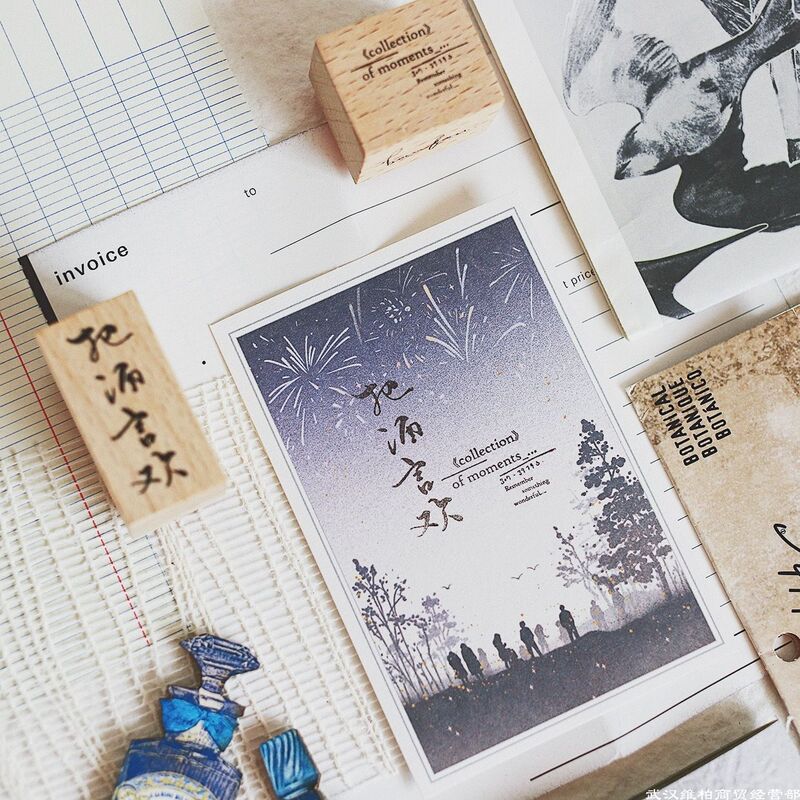 《collection》
of moments_...
Remember
something
wonderful...
to
invoice
t price
把酒言欢
把酒言欢
《collection》
of moments_...
Remember
something
wonderful...
BOTANICAL
BOTANIQUE
BOTANICO
武汉维柏商贸经营部